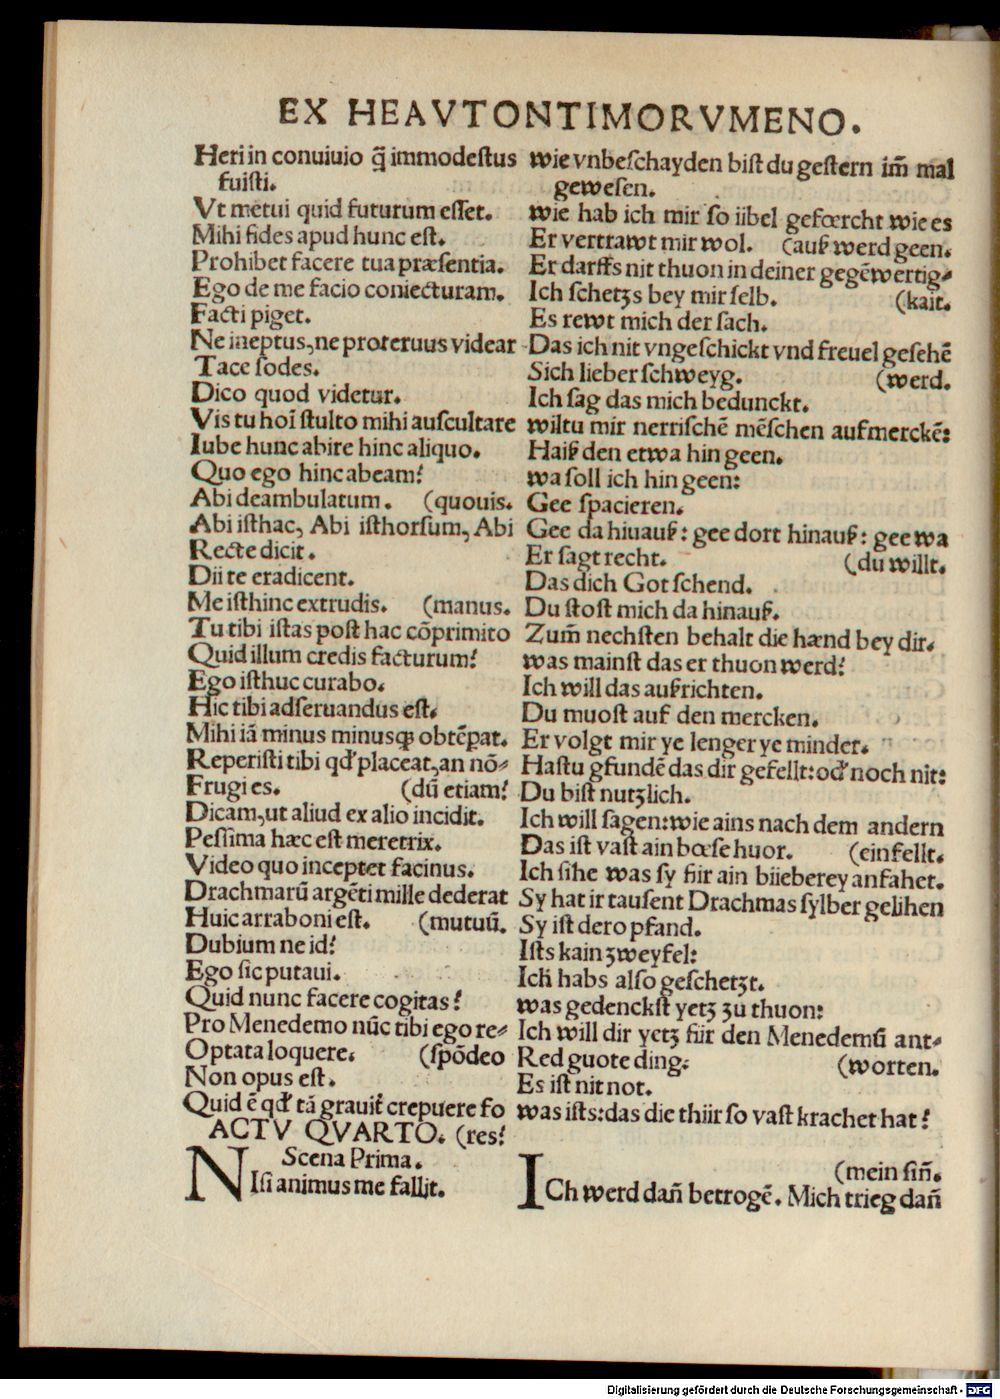 EX HEAVTONTIMORVMENO.
Heri in conuiuio q̃ immodestus
fuisti.
Vt metui quid futurum esset.
Mihi fides apud hunc est.
Prohibet facere tua præsentia.
Ego de me facio coniecturam.
Facti piget.
Ne ineptus, ne proteruus videar
Tace sodes.
Dico quod videtur.
Vis tu hoĩ stulto mihi auscultare
Iube hunc abire hinc aliquo.
Quo ego hinc abeam?
Abi deambulatum. (quouis.
Abi isthac, Abi isthorsum, Abi
Recte dicit.
Dii te eradicent.
Me isthinc extrudis. (manus.
Tu tibi istas post hac cõprimito
Quid illum credis facturum?
Ego isthuc curabo.
Hic tibi adseruandus est.
Mihi iã minus minusq; obtẽpat.
Reperisti tibi qđ placeat, an nõ-
Frugi es. (dũ etiam?
Dicam, ut aliud ex alio incidit.
Pessima hæc est meretrix.
Video quo inceptet facinus.
Drachmarũ argẽti mille dederat
Huic arraboni est. (mutuũ.
Dubium ne id?
Ego sic putaui.
Quid nunc facere cogitas?
Pro Menedemo nũc tibi ego re-
Optata loquere. (spõdeo
Non opus est.
Quid ẽ qđ tã grauit̃ crepuere fo
ACTV QVARTO. (res?
Scena Prima.
NIsi animus me fallit.
wie vnbeschayden bist du gestern im̃ mal
gewesen.
wie hab ich mir so iibel gefœrcht wie es
Er vertrawt mir wol. (auß werd geen.
Er darffs nit thuon in deiner gegẽwertig-
Ich schetzs bey mir selb. (kait.
Es rewt mich der sach.
Das ich nit vngeschickt vnd freuel gesehẽ
Sich lieber schweyg. (werd.
Ich sag das mich bedunckt.
wiltu mir nerrischẽ mẽschen aufmerckẽ:
Haiß den etwa hin geen.
wa soll ich hin geen:
Gee spacieren.
Gee da hiuauß: gee dort hinauß: gee wa
Er sagt recht. (du willt.
Das dich Got schend.
Du stost mich da hinauß.
Zum̃ nechsten behalt die hænd bey dir.
was mainst das er thuon werd?
Ich will das außrichten.
Du muost auf den mercken.
Er volgt mir ye lenger ye minder.
Hastu gfundẽ das dir gefellt: ođ noch nit:
Du bist nutzlich.
Ich will sagen: wie ains nach dem andern
Das ist vast ain bœse huor. (einfellt.
Ich sihe was sy fiir ain biieberey anfahet.
Sy hat ir tausent Drachmas sylber gelihen
Sy ist dero pfand.
Ists kain zweyfel:
Ich habs also geschetzt.
was gedenckst yetz zu thuon:
Ich will dir yetz fiir den Menedemũ ant-
Red guote ding: (worten.
Es ist nit not.
was ists: das die thiir so vast krachet hat?
(mein siñ.
ICh werd dañ betrogẽ. Mich trieg dañ
Digitalisierung gefördert durch die Deutsche Forschungsgemeinschaft - DFG